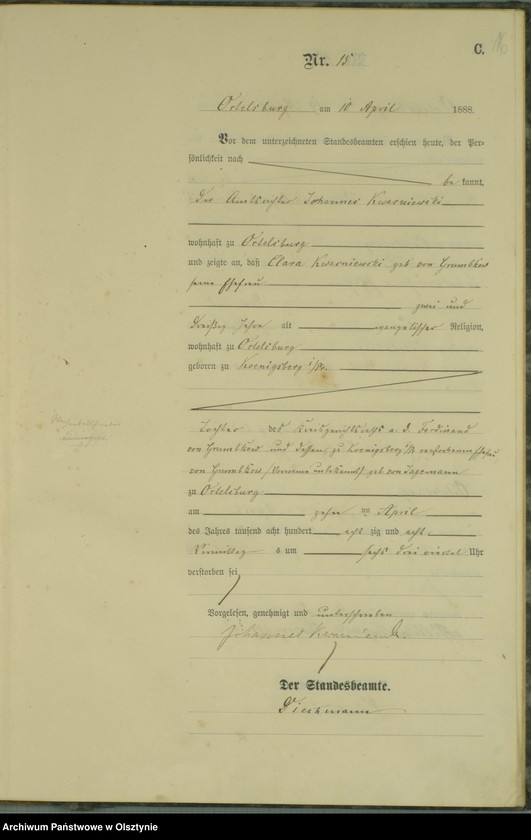 C.
Nr. 15
Ortelsburg am 10 April 1888.
Vor dem unterzeichneten Standesbeamten erschien heute, der Per-
sönlichkeit nach
be kannt,
der Amtsrichter Johannes Kwerniewski
wohnhaft zu Ortelsburg
und zeigte an, daß Clara Kwerniewski geb von Grumbkow
seine Ehefrau
zwei und
dreißig Jahre alt evangelischer Religion,
wohnhaft zu Ortelsburg
geboren zu Koenigsberg i/Pr.
Tochter des Kreisgerichtsraths a. D. Ferdinand
von Grumbkow und dessen zu Koenigsberg verstorbenen Ehefrau
von Grumbkow /Vorname unbekannt/ geb von
zu Ortelsburg
am zehn ten April
des Jahres tausend acht hundert acht zig und acht
Vormittag s um sechs drei viertel Uhr
verstorben sei
Vorgelesen, genehmigt und unterschrieben
Johannes
Der Standesbeamte.
Archiwum Państwowe w Olsztynie